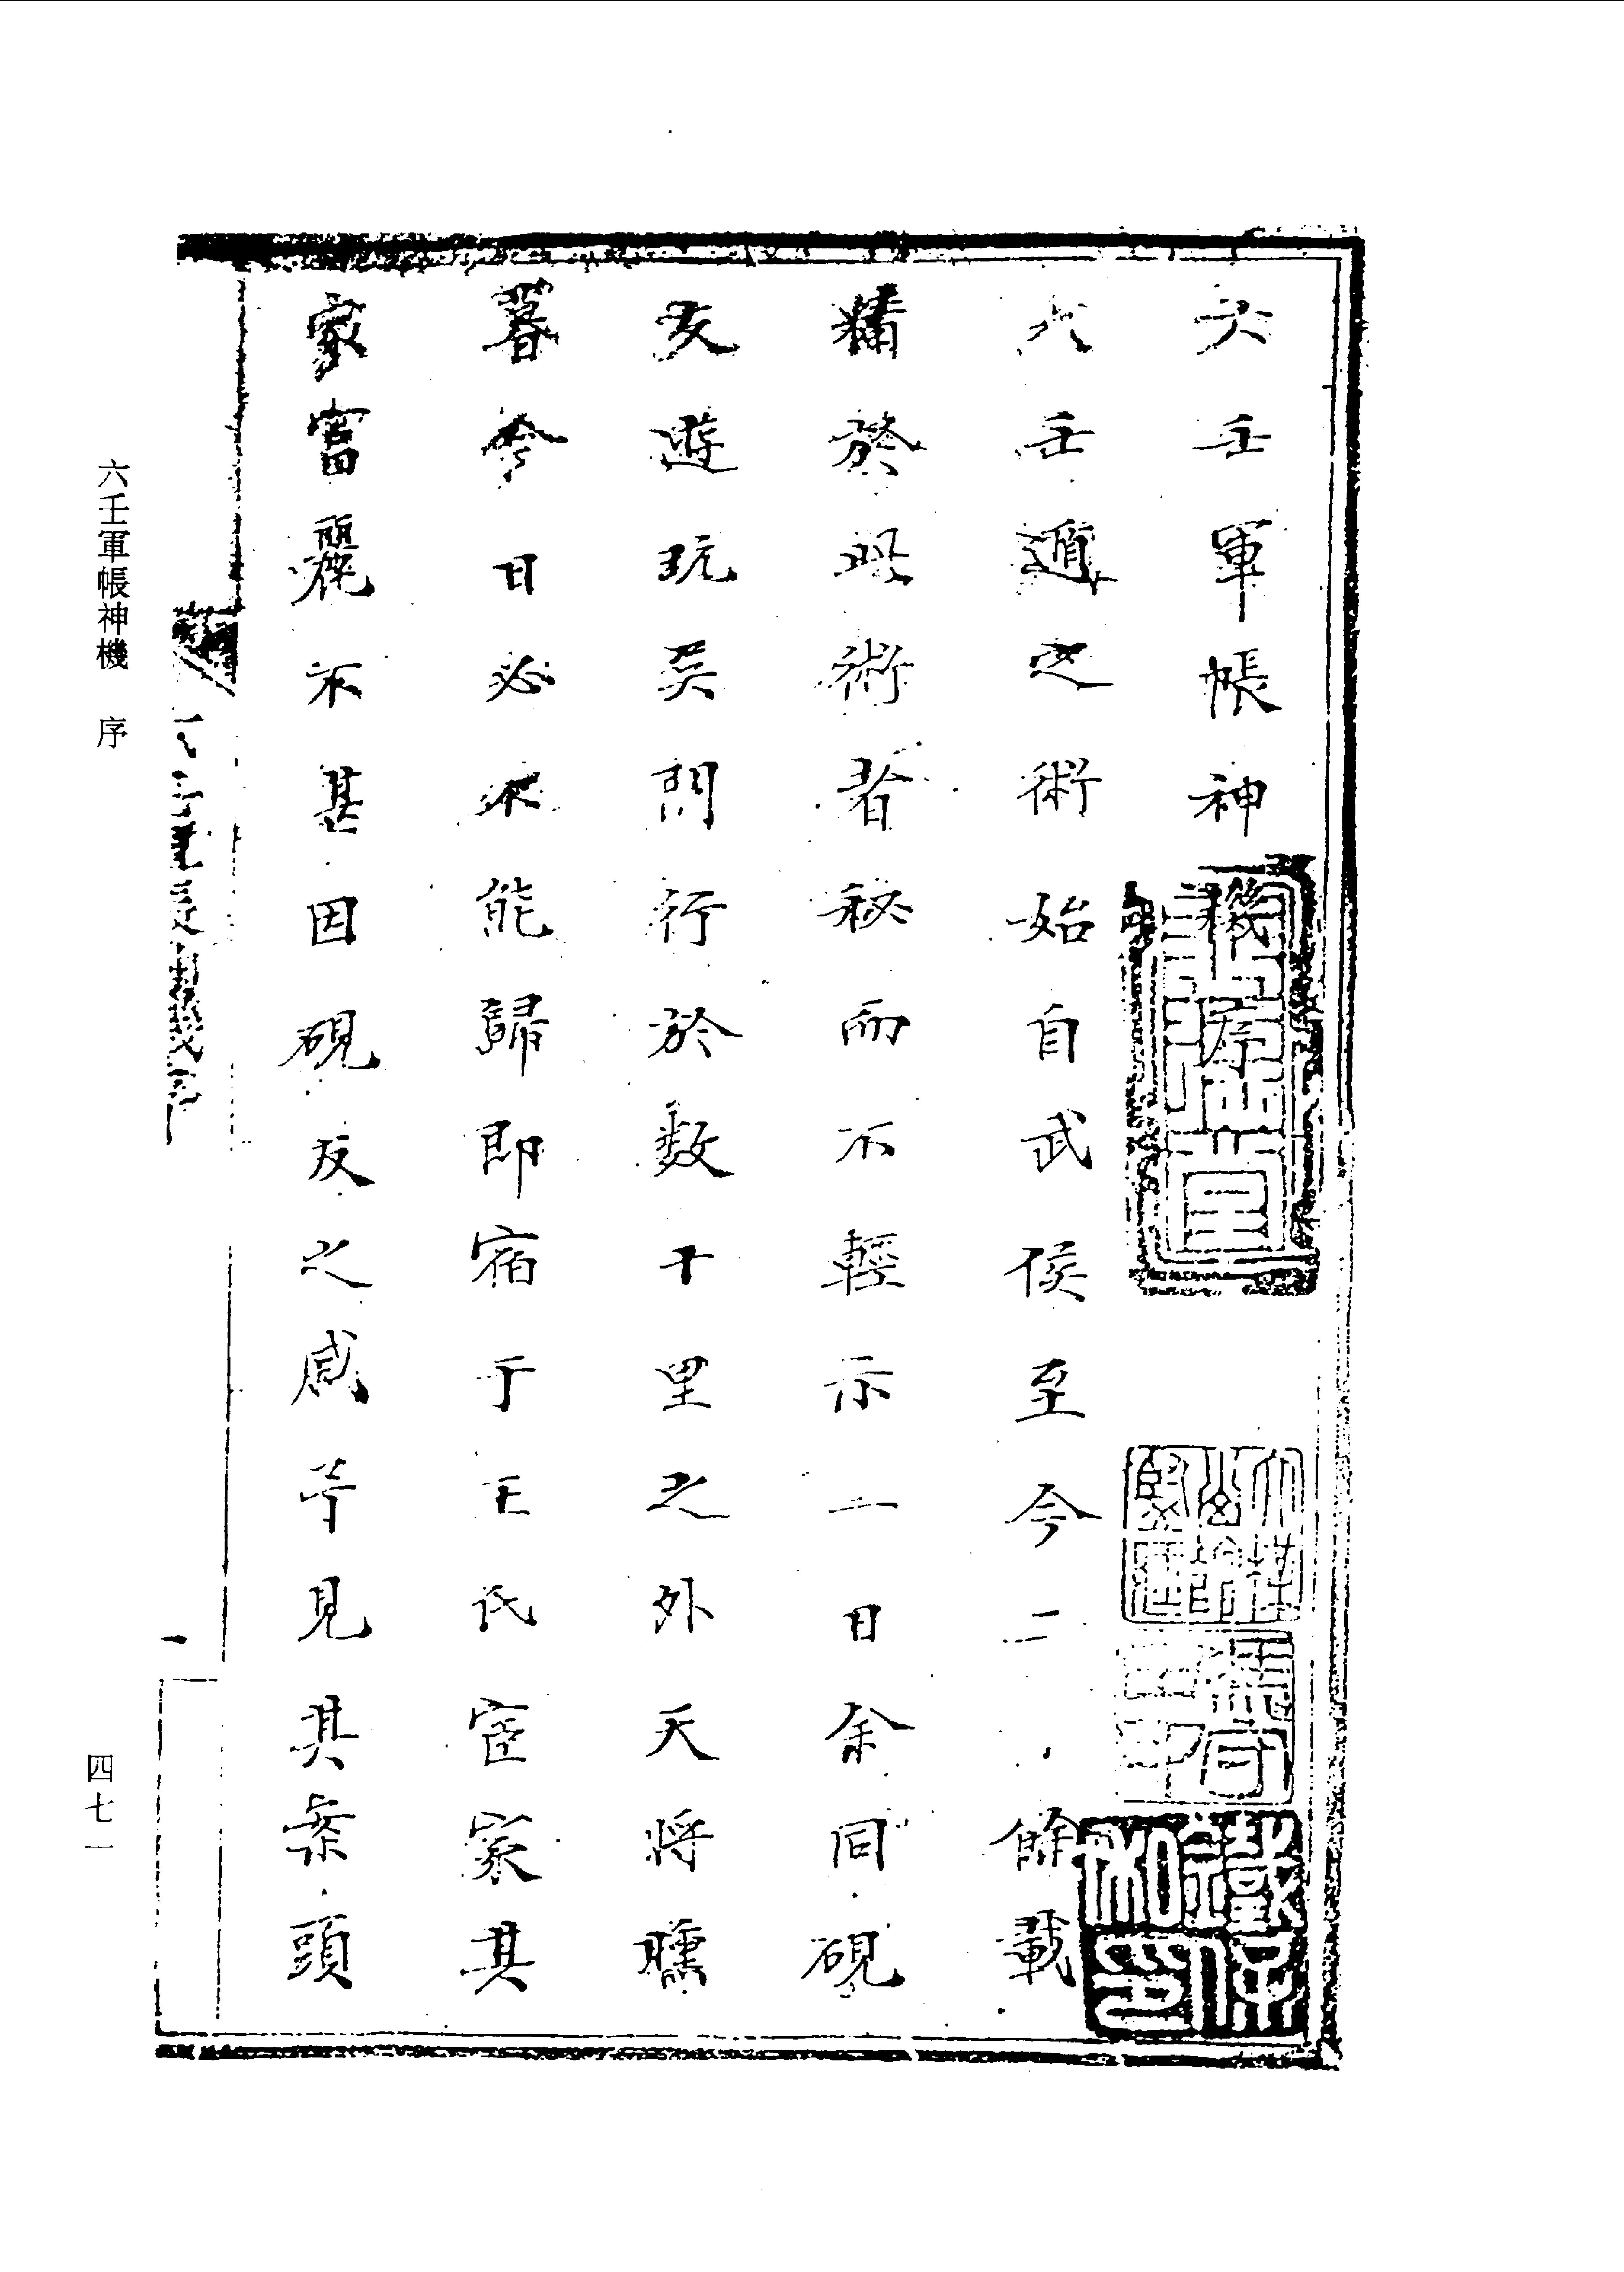 六壬軍帳神機序
六壬遁之術始自武侯至今二餘載
精於此術者秘而不輕示一日余同硯
友遊玩吳門行於数十里之外天將曛
暮今日必不能歸即宿于王氏宦家其
家富麗不甚因硯友之戚予見其案頭
六壬軍帳神機序
一
六壬軍帳神機 序
四七一